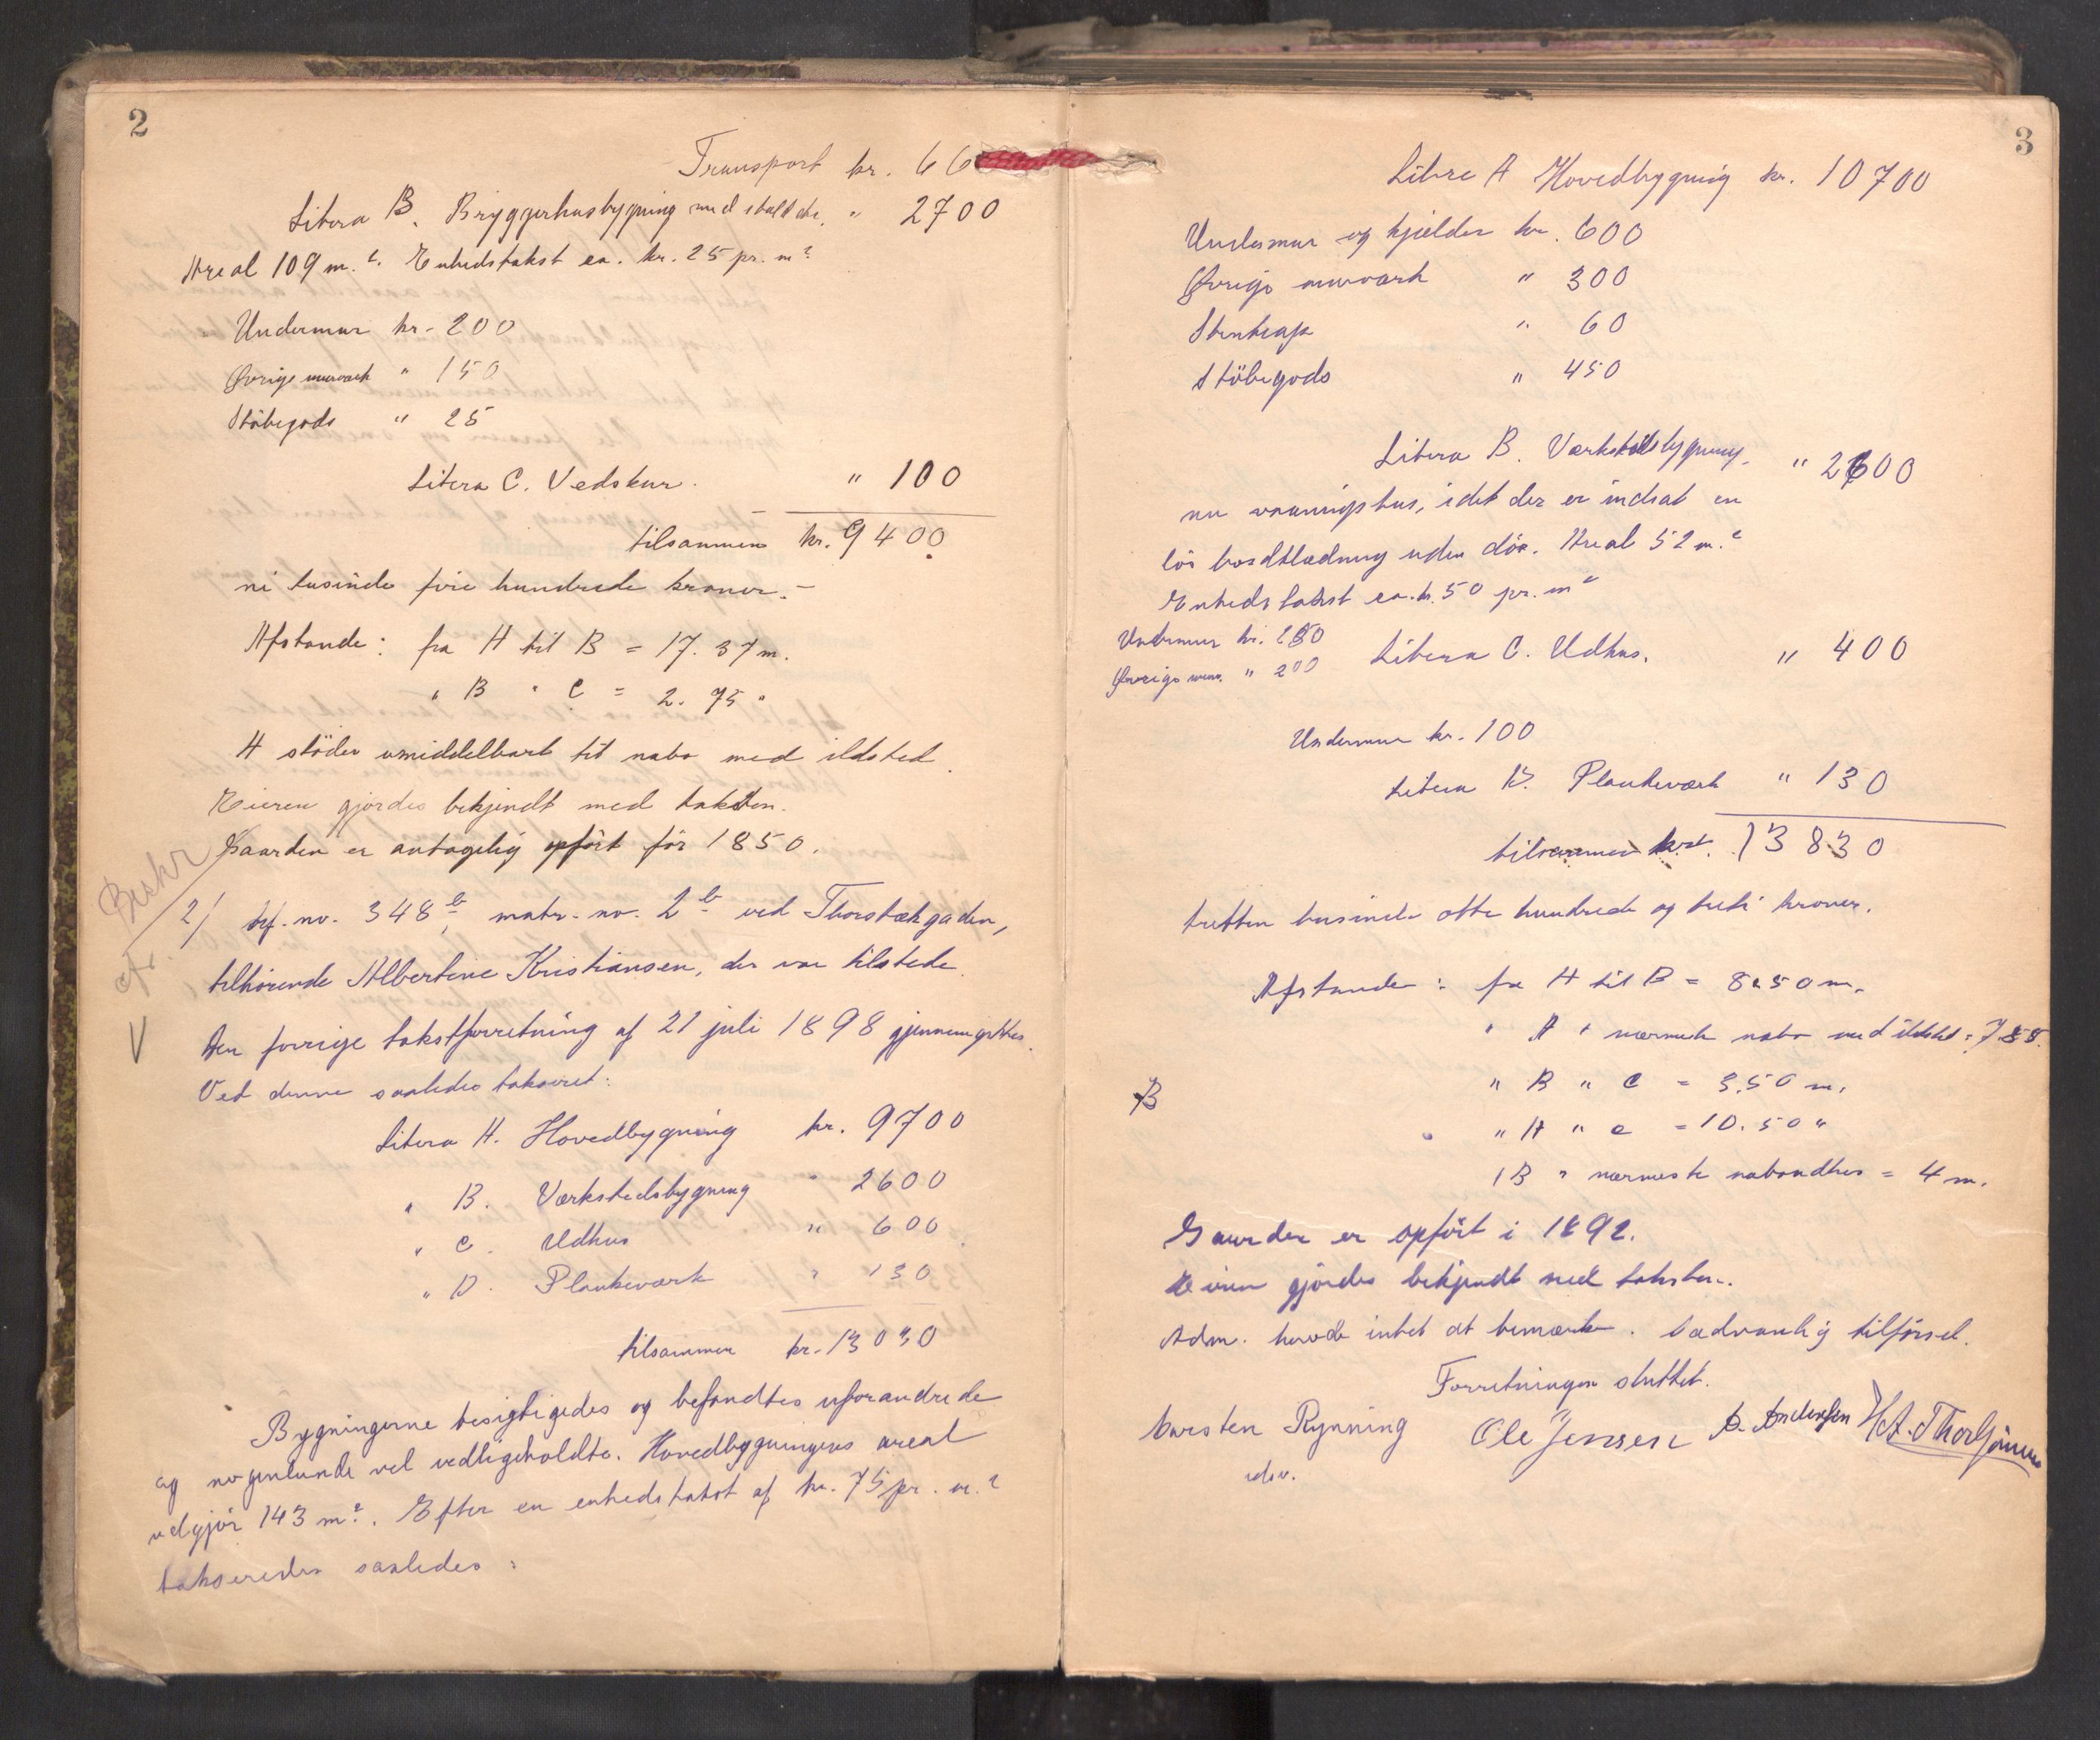 2
Transport kr. 66
Litera B. Bryggerhusbygning med stald etc. " 2700
Areal 109 m.². Enhedstakst ca. kr. 25 pr. m²
Undermur kr. 200
Øvrige murværk " 150
Stöbegods " 25
Litera C. Vedskur. " 100
tilsammen kr. 9400
ni tusinde fire hundrede kroner.-
Afstande: fra A til B = 17.37 m.
" B " C = 2.75 "
A stöder umiddelbart til nabo med ildsted.
Eieren gjordes bekjendt med taksten.
Gaarden er antagelig opfört för 1850.
2/ brf. no. 348 b, matr. no. 2 b ved Thorstækgaden,
tilhörende Albertine Kristiansen, der var tilstede.
Den forrige takstforretning af 21 juli 1898 gjennemgikkes.
Ved denne saaledes takseret:
Litera A. Hovedbygning kr. 9700
" B. Værkstedsbygning " 2600
" C. Udhus " 600
" D. Plankeværk " 130
tilsammen kr. 13030
Bygningerne besigtigedes og befandtes uforandrede
og nogenlunde vel vedligeholdte. Hovedbygningens areal
udgjör 143 m². Efter en enhedstakst af kr. 75 pr. m.²
takseredes saaledes:
V
3
Litra A Hovedbygning kr. 10700
Undermur og kjelder kr. 600
Övrige murværk " 300
Stentrap " 60
Stöbegods " 450
Litera B. Værkstedsbygning, " 2600
nu vaaningshus, idet der er indsat en
lös bordklædning uden dör. Areal 52 m.²
Enhedstakst ca. kr. 50 pr. m²
Undermur kr. 250
Øvrige mur. " 200
Litera C. Udhus. " 400
Undermur kr. 100
Litera D. Plankeværk " 130
tilsammen kr. 13830
tretten tusinde otte hundrede og treti kroner.
Afstande: fra A til B = 8.50 m.
" A " nærmeste nabo med ildsted = 7.55.
" B " C = 3.50 m.
B
" A " C = 10.50 "
" B " nærmeste naboudhus = 4 m.
Gaarden er opfört i 1892.
Eieren gjordes bekjendt med taksten.
Adm. havde intet at bemærke. Sædvanlig tilförsel.
Forretningen sluttet.
Carsten Rynning Ole Jensen A. Andersen
edsv.